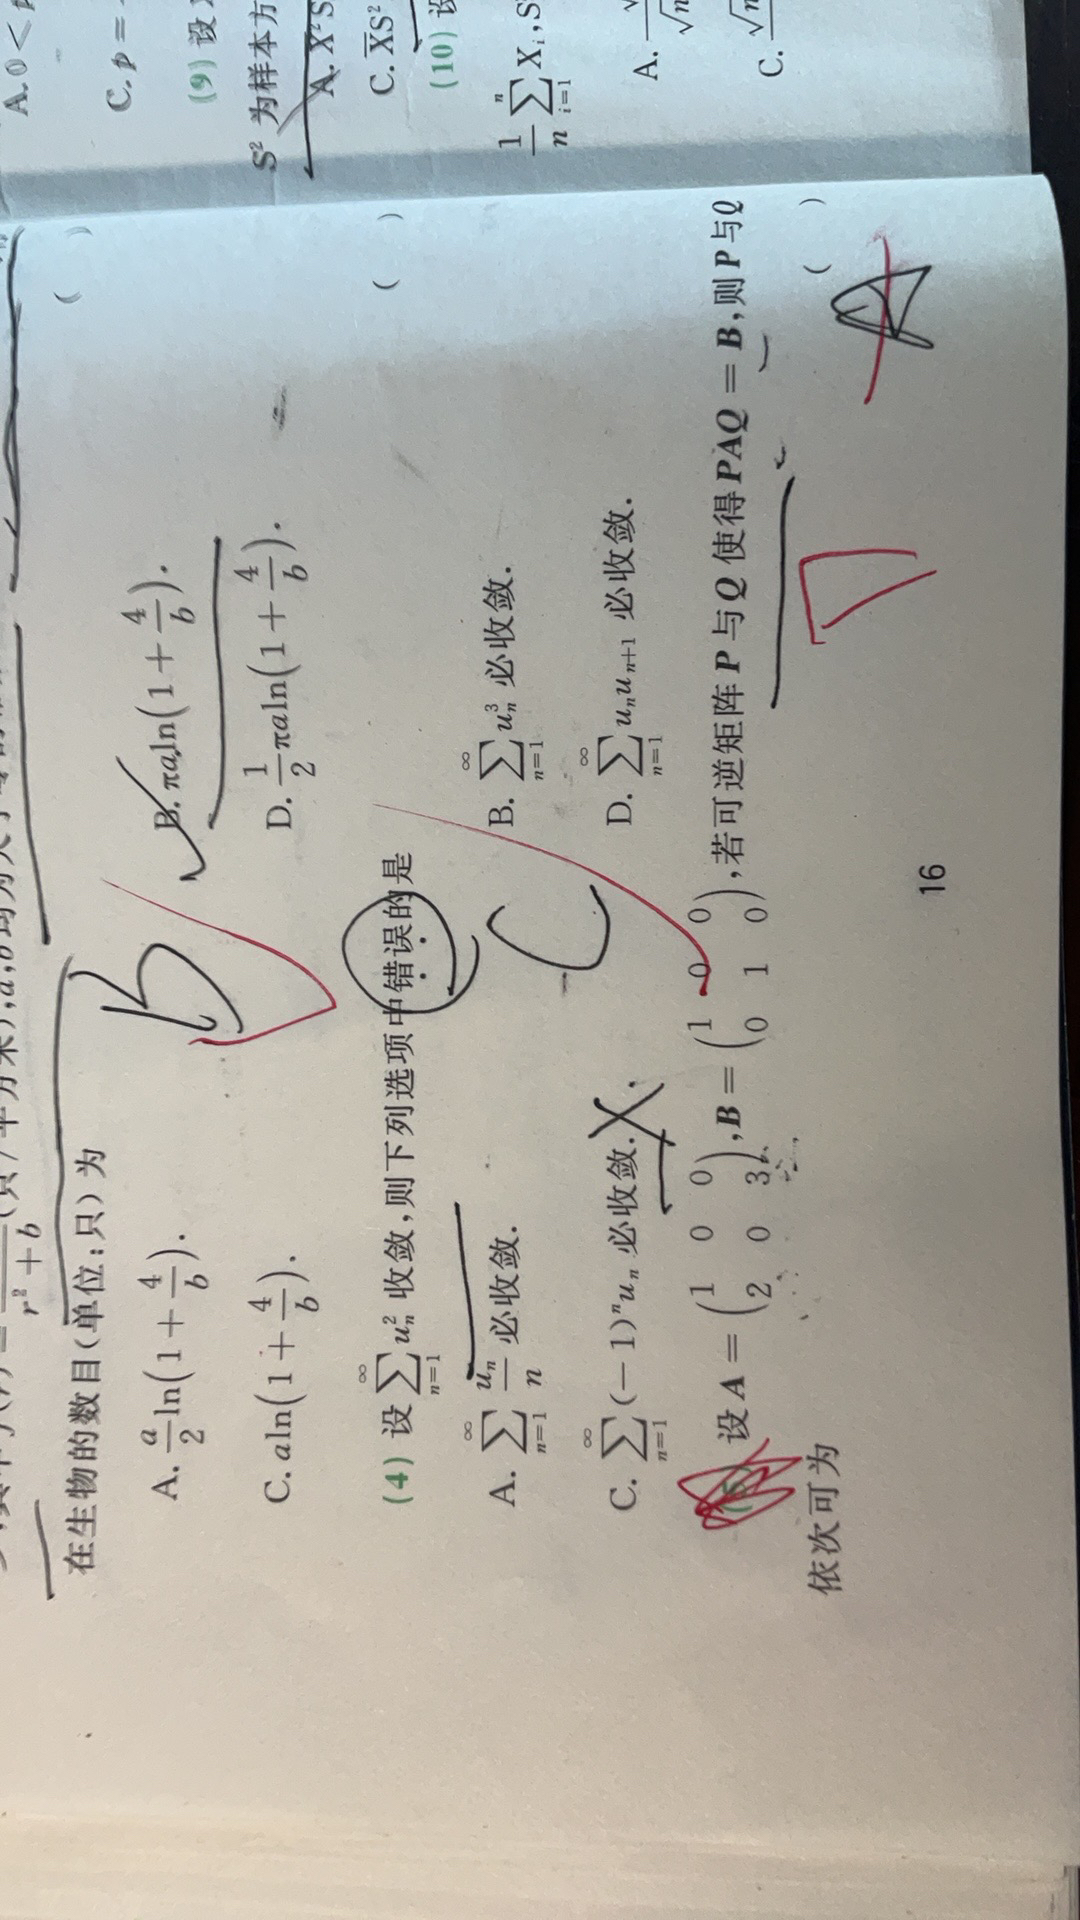 r² + b
在生物的数目(单位:只)为
A. a/2 ln(1 + 4/b).
B. πaln(1 + 4/b).
C. aln(1 + 4/b).
D. 1/2 πaln(1 + 4/b).
B
( )
(4) 设 ∑_{n=1}^{∞} u_n² 收敛,则下列选项中错误的是
( )
A. ∑_{n=1}^{∞} u_n/n 必收敛.
B. ∑_{n=1}^{∞} u_n³ 必收敛.
C. ∑_{n=1}^{∞} (−1)ⁿu_n 必收敛.
D. ∑_{n=1}^{∞} u_n u_{n+1} 必收敛.
C
设 A = (1 0 0; 2 0 3), B = (1 0 0; 0 1 0), 若可逆矩阵 P 与 Q 使得 PAQ = B, 则 P 与 Q
依次可为
( )
D
A
16
A. 0 <
C. p =
(9) 设
S² 为样本方
A. X²S
C. X̄S²
(10) 设
1/n ∑_{i=1}^{n} X_i, S
A.
√n
C.